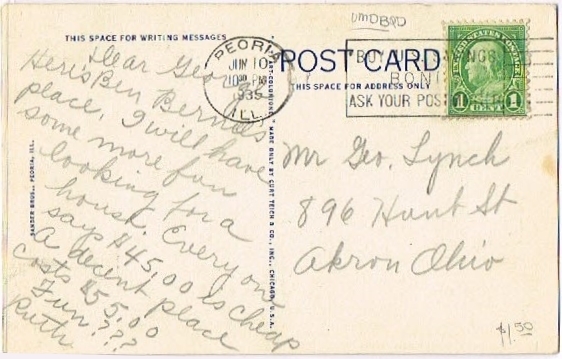 UMDBPD
THIS SPACE FOR WRITING MESSAGES
POST CARD
THIS SPACE FOR ADDRESS ONLY
PEORIA
JUN 10
PM
1935
ILL.
BUY U.S. SAVINGS
BON
ASK YOUR POS
UNITED STATES POSTAGE
1 CENT 1
Dear George
Here's Ben Bernie's
place. I will have
some more fun
looking for a
house. Everyone
says $45.00 is cheap
A decent place
costs $55.00
Fun???
Ruth
Mr Geo. Lynch
896 Hunt St
Akron Ohio
SANDER BROS., PEORIA, ILL.
"ART-COLORTONE" MADE ONLY BY CURT TEICH & CO., INC., CHICAGO, U.S.A.
$1.50